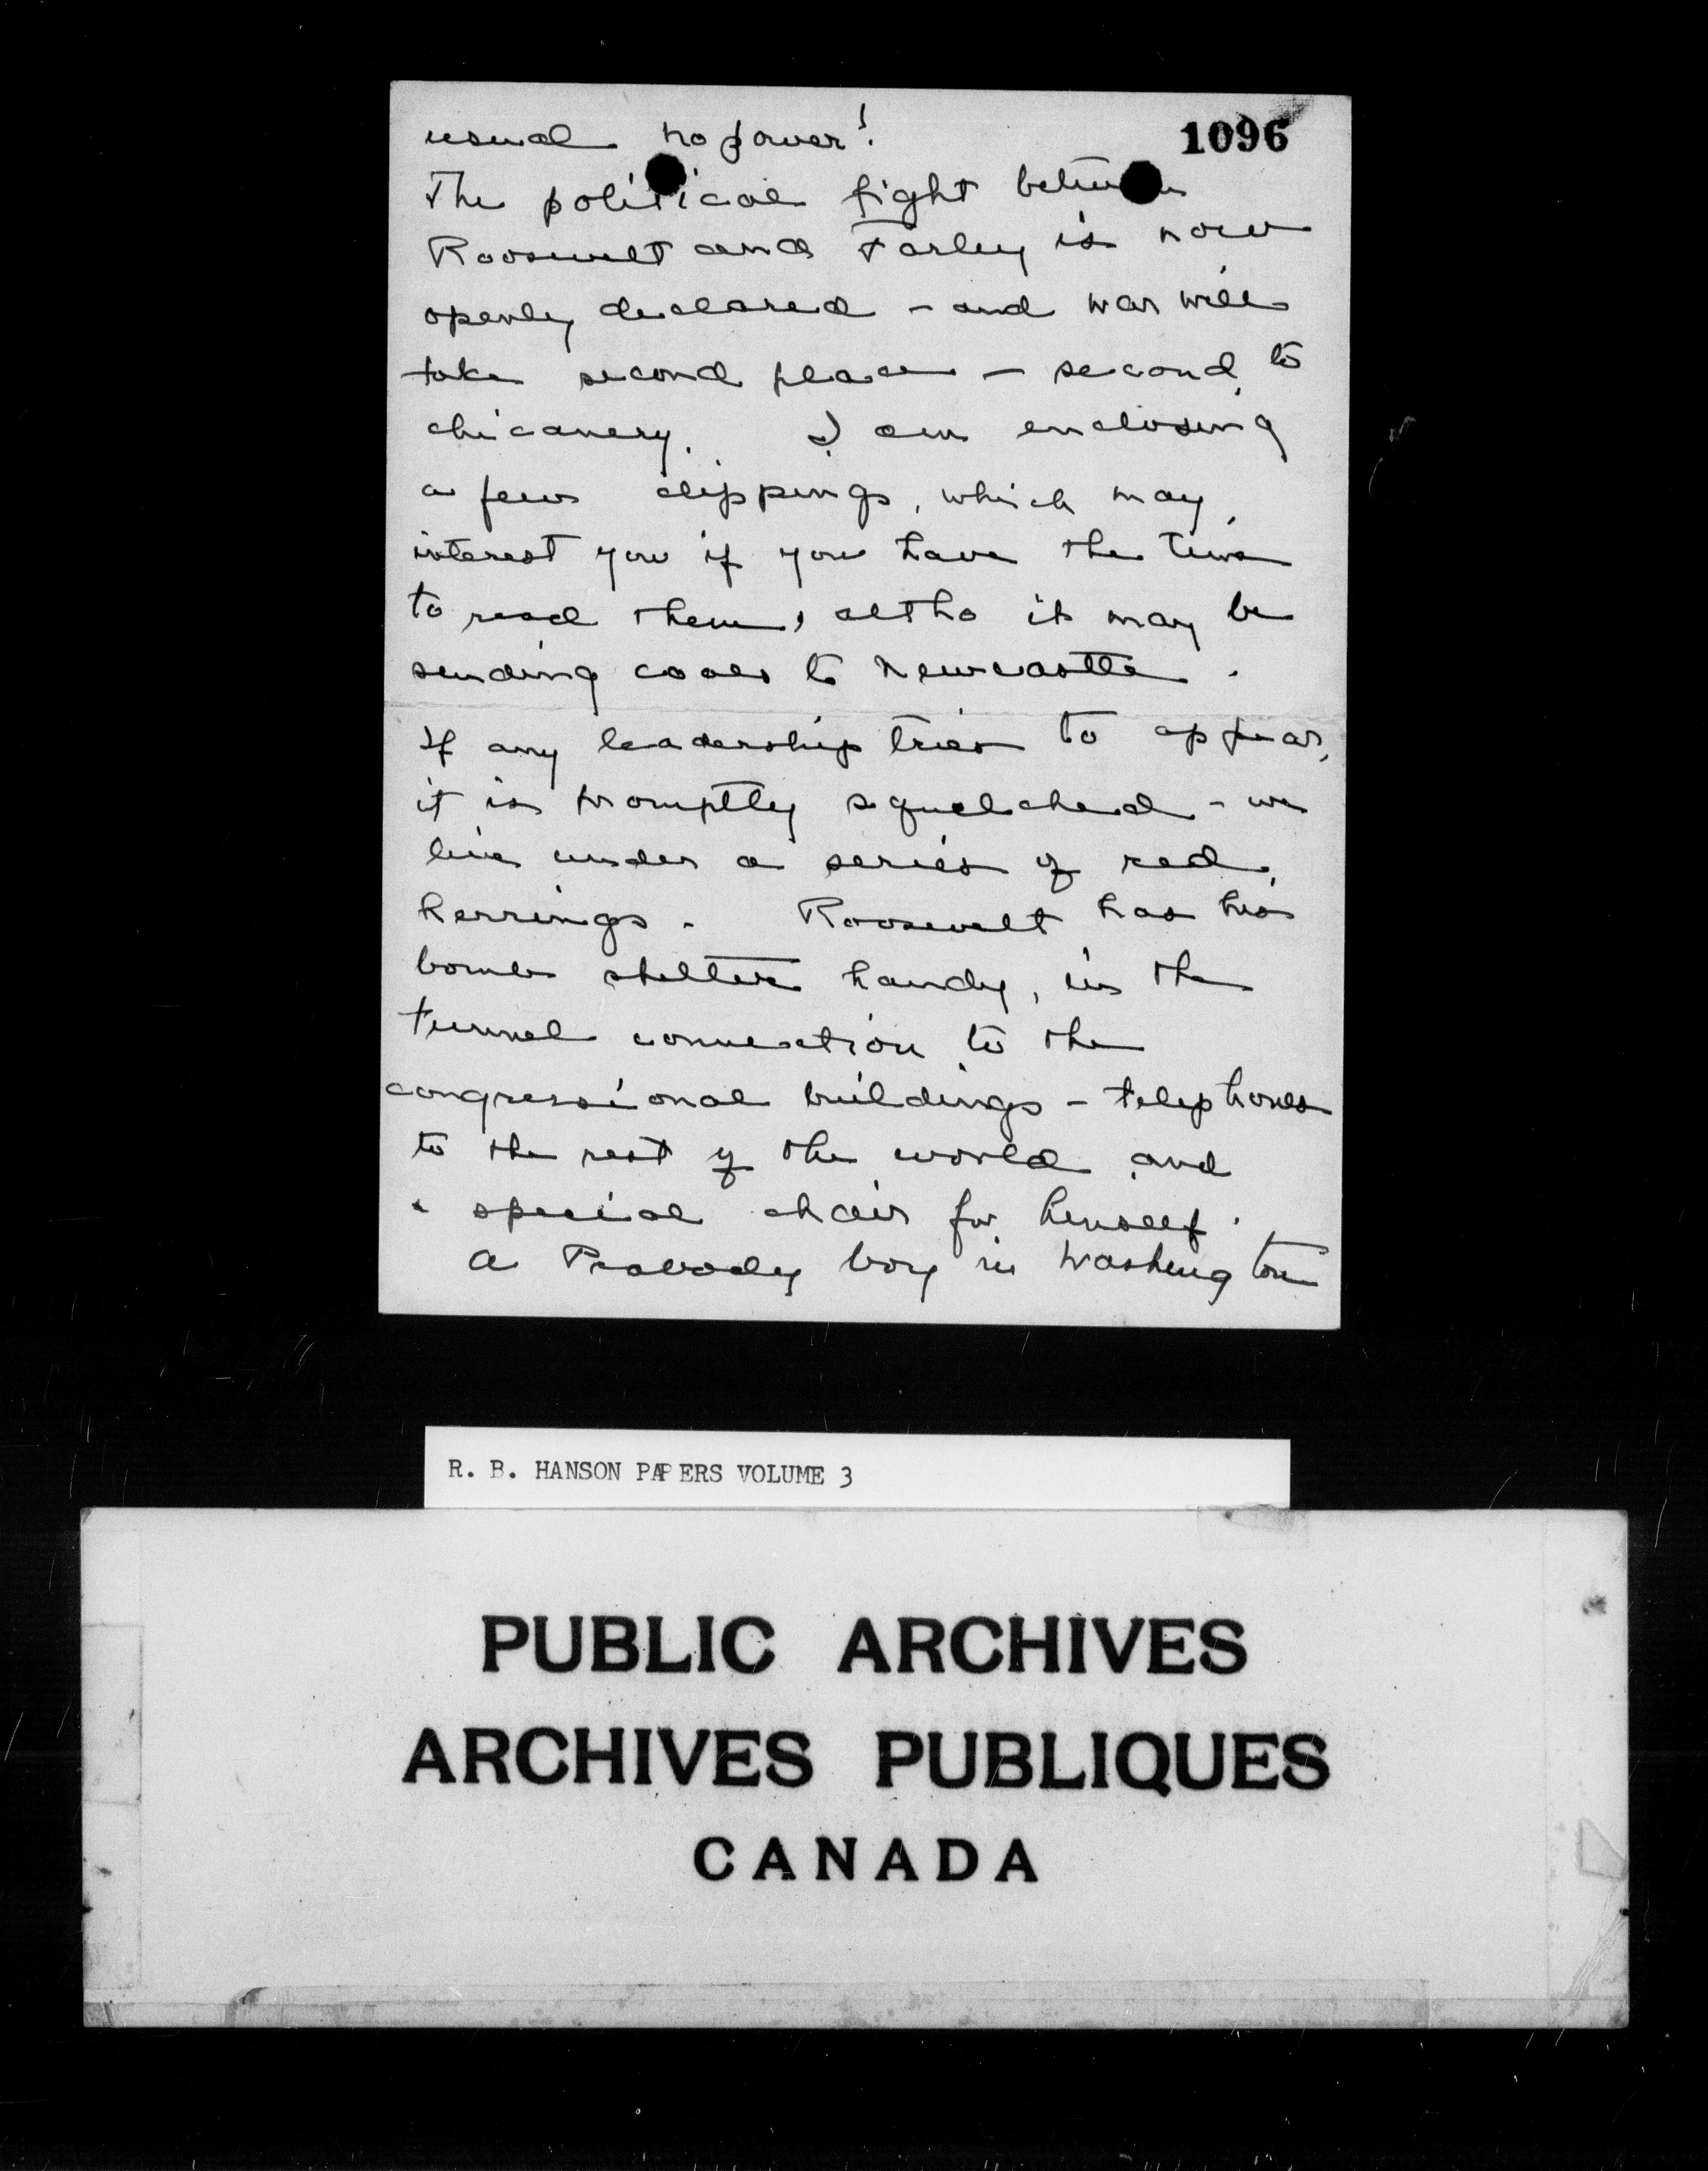 1096
usual no power!
The political fight between
Roosevelt and Farley is now
openly declared - and war will
take second place - second to
chicanery. I am enclosing
a few clippings, which may
interest you if you have the time
to read them, altho it may be
sending coals to Newcastle.
If any leadership tries to appear,
it is promptly squelched - we
live under a series of red
herrings. Roosevelt has his
bomb shelter handy, in the
tunnel connection to the
congressional buildings - telephones
to the rest of the world and
a special chair for himself.
A Peabody boy in Washington
R. B. HANSON PAPERS VOLUME 3
PUBLIC ARCHIVES
ARCHIVES PUBLIQUES
CANADA